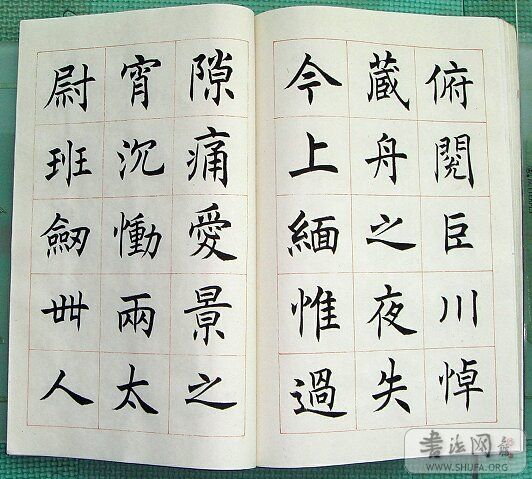 俯閱巨川悼
藏舟之夜失
今上緬惟過
隙痛愛景之
宵沉慟兩太
尉班劔卌人
書法网
WWW.SHUFA.ORG